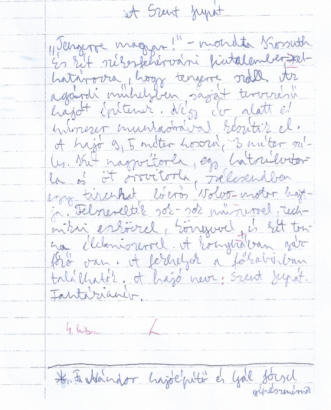 A Szent Jupát
„Tengerre magyar!” – mondta Kossuth
és két székesfehérvári fiatalember el-
határozta, hogy tengerre száll. Az
agárdi műhelyben saját tervezésű
hajót építenek. Négy év alatt
munkaórával készítik el.
A hajó 9,5 méter hosszú, 3 méter szé-
les. Két nagyvitorla, egy
la és öt orrvitorla,
egy tizenhat lóerős Volvo-motor hajt-
ja. Felszerelték sok-sok műszerrel, tech-
nikai eszközzel, könyvvel, és két ton-
na élelmiszerrel. A konyhában gáz-
főző van. A férőhelyek a főkabinban
találhatók. A hajó neve: Szent Jupát.
Fantázianév.
* Fa Nándor hajóépítő és Gál József
gépészmérnök